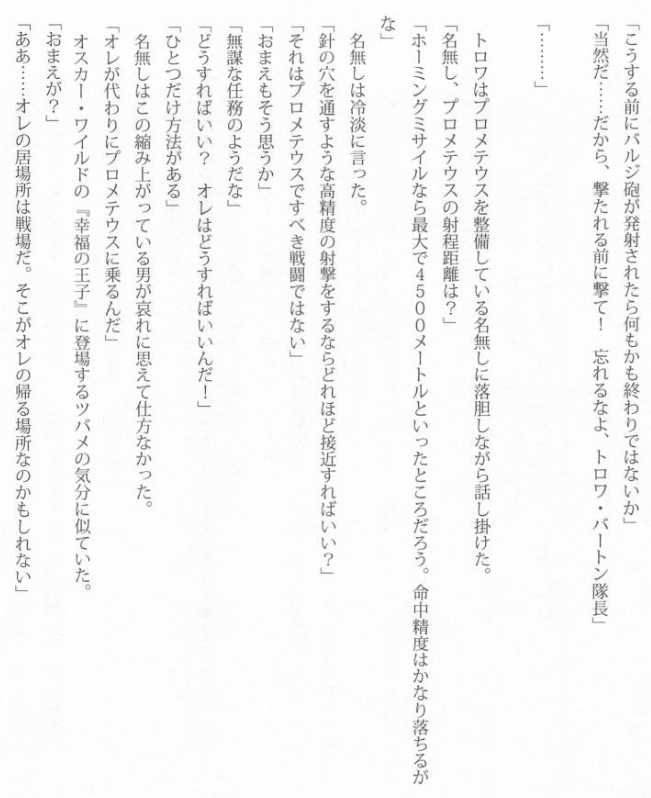 「こうする前にバルジ砲が発射されたら何もかも終わりではないか」
「当然だ……だから、撃たれる前に撃て！　忘れるなよ、トロワ・バートン隊長」
「………」
トロワはプロメテウスを整備している名無しに落胆しながら話し掛けた。
「名無し、プロメテウスの射程距離は？」
「ホーミングミサイルなら最大で４５００メートルといったところだろう。命中精度はかなり落ちるが
な」
名無しは冷淡に言った。
「針の穴を通すような高精度の射撃をするならどれほど接近すればいい？」
「それはプロメテウスですべき戦闘ではない」
「おまえもそう思うか」
「無謀な任務のようだな」
「どうすればいい？　オレはどうすればいいんだ！」
「ひとつだけ方法がある」
名無しはこの縮み上がっている男が哀れに思えて仕方なかった。
「オレが代わりにプロメテウスに乗るんだ」
オスカー・ワイルドの『幸福の王子』に登場するツバメの気分に似ていた。
「おまえが？」
「ああ……オレの居場所は戦場だ。そこがオレの帰る場所なのかもしれない」